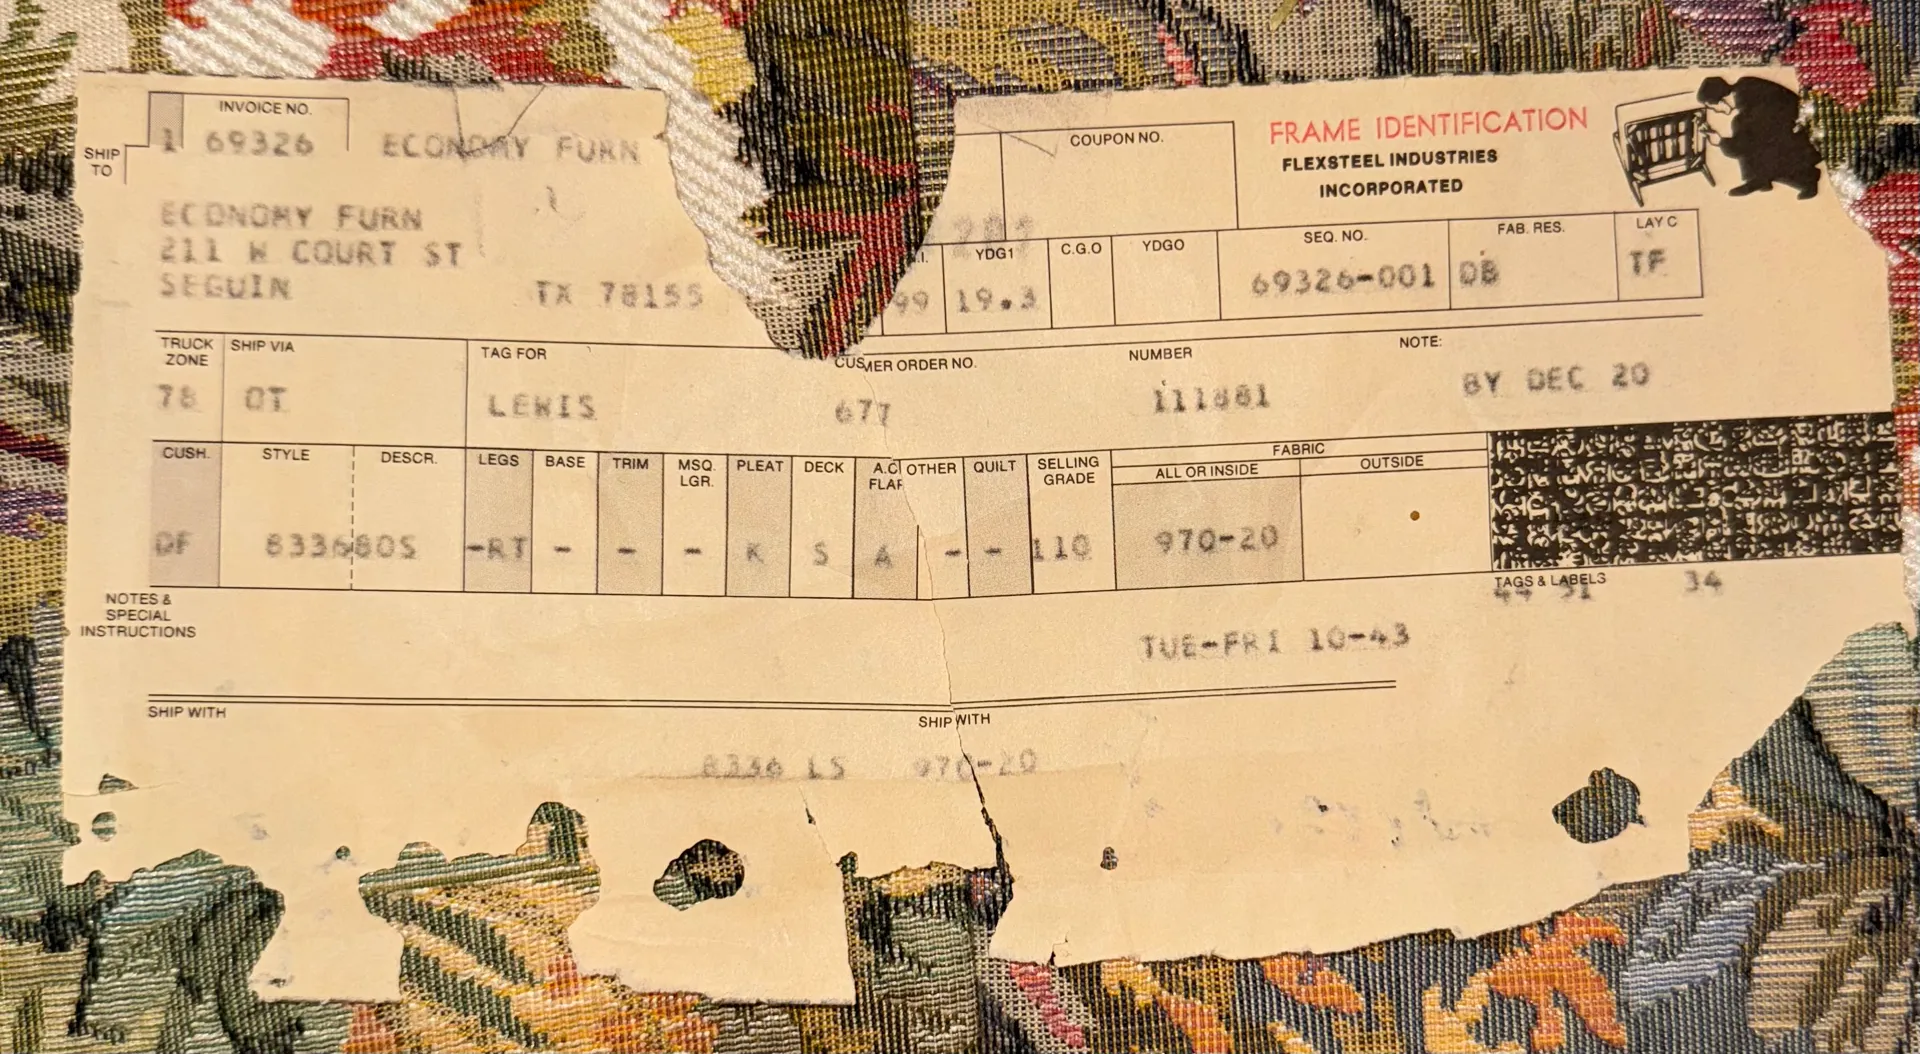 INVOICE NO.
1 69326 ECONOMY FURN
SHIP TO
ECONOMY FURN
211 W COURT ST
SEGUIN TX 78155
COUPON NO.
FRAME IDENTIFICATION
FLEXSTEEL INDUSTRIES
INCORPORATED
YDG1 C.G.O YDGO SEQ. NO. FAB. RES. LAY C
99 19.3 69326-001 DB TF
TRUCK ZONE SHIP VIA TAG FOR CUSMER ORDER NO. NUMBER NOTE:
78 OT LEWIS 677 111881 BY DEC 20
CUSH. STYLE DESCR. LEGS BASE TRIM MSQ. LGR. PLEAT DECK A.C FLAP OTHER QUILT SELLING GRADE FABRIC
ALL OR INSIDE OUTSIDE
DF 833680S -RT - - - K S A - - 110 970-20
TAGS & LABELS
44 51 34
NOTES &
SPECIAL
INSTRUCTIONS
TUE-FRI 10-43
SHIP WITH SHIP WITH
8336 LS 970-20